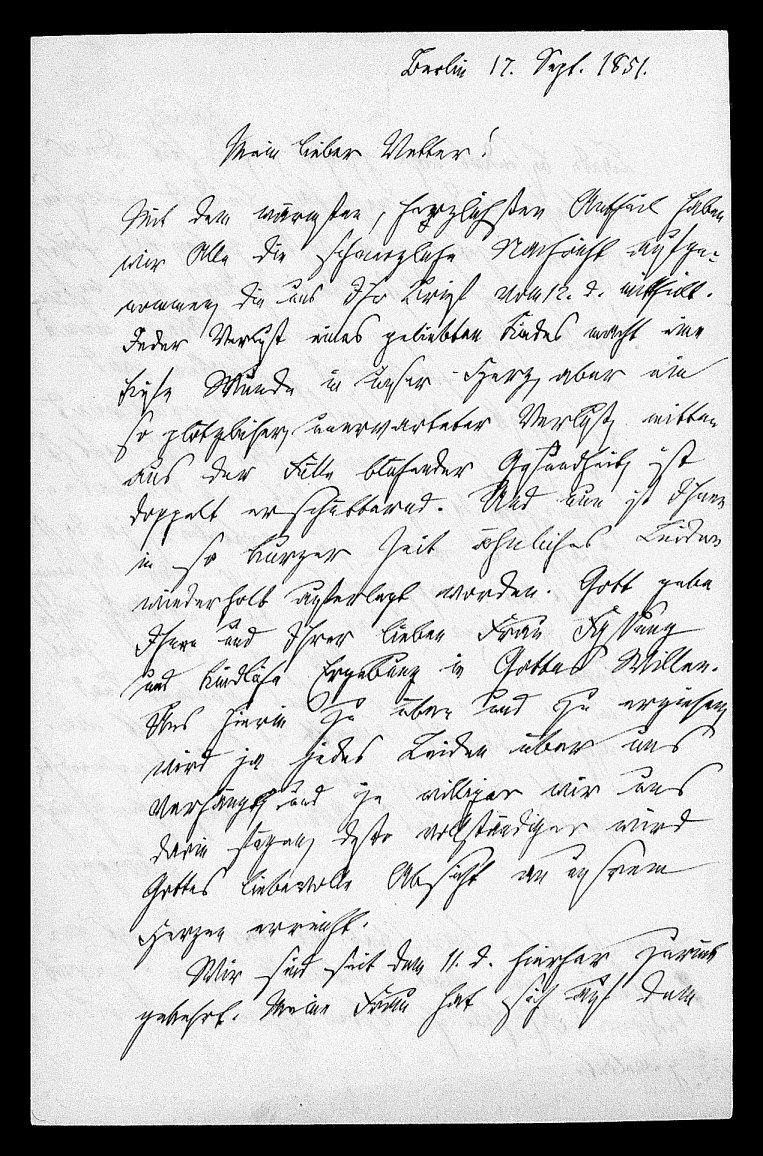 Berlin 17. Sept. 1851.
Mein lieber Vetter!
Mit dem wärmsten, herzlichsten Antheil haben
wir Alle die schmerzliche Nachricht aufge-
nommen, die uns Ihr Brief vom 12. d. mittheilt.
Jeder Verlust eines geliebten Kindes macht eine
tiefe Wunde in unser Herz, aber ein
so plötzlicher, unerwarteter Verlust, mitten
aus der Fülle blühender Gesundheit, ist
doppelt erschütternd. Und nun ist Ihnen
in so kurzer Zeit ähnliches Leiden
wiederholt auferlegt worden. Gott gebe
Ihnen und Ihrer lieben Frau Fassung
und kindliche Ergebung in Gottes Willen.
Uns hierin zu üben und zu erziehen,
wird ja jedes Leiden über uns
verhängt, und je williger wir uns
darin fügen, desto vollständiger wird
Gottes liebevolle Absicht an unsrem
Herzen erreicht.
Wir sind seit dem 11. d. hierher zurück
gekehrt. Meine Frau hat sich auf dem